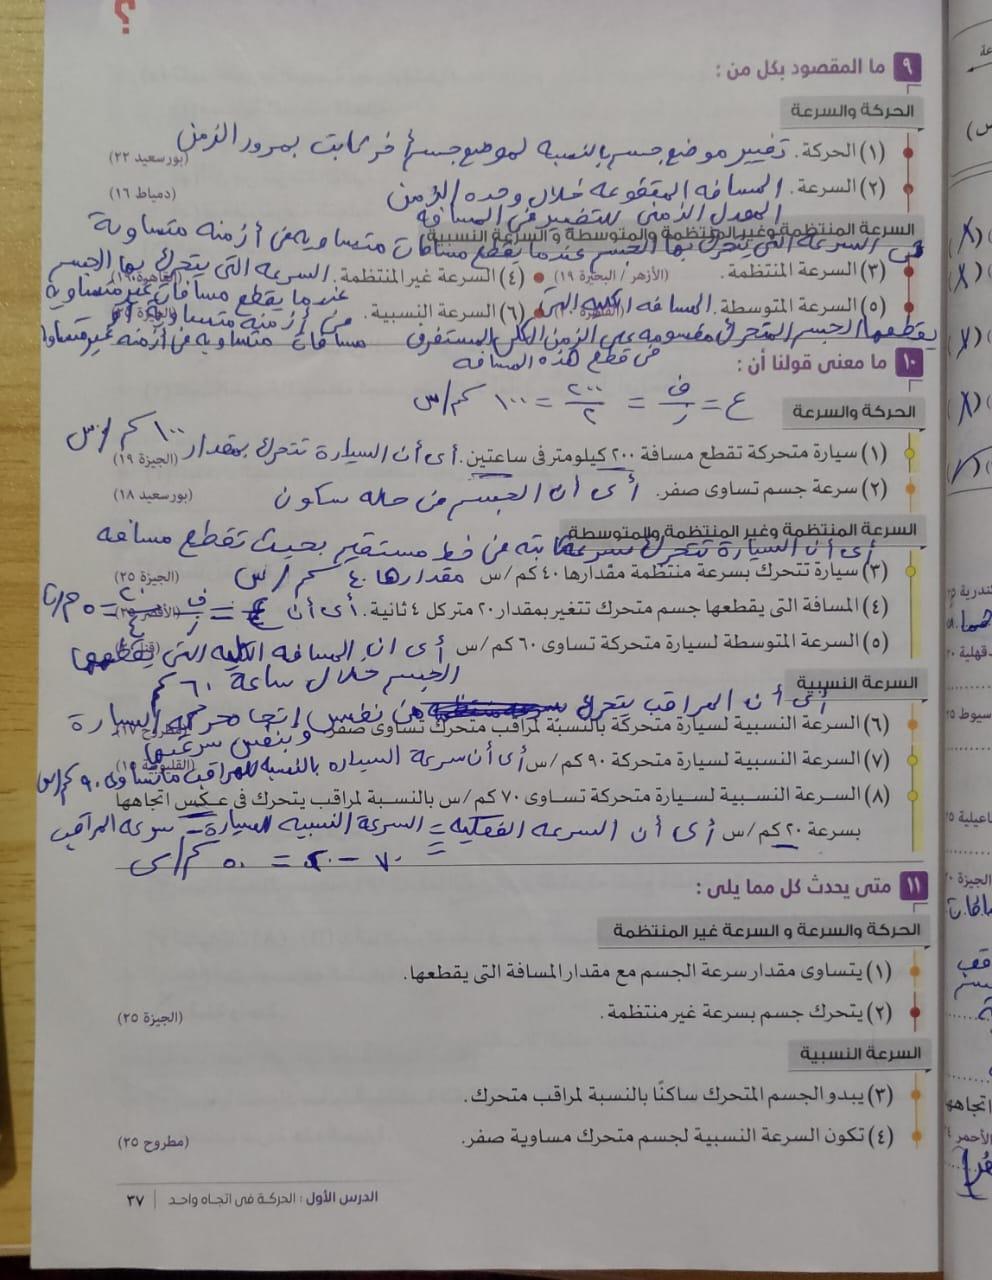 ؟
٩ ما المقصود بكل من :
الحركة والسرعة
(١) الحركة. تغيير موضع جسم بالنسبة لموضع جسم أخر ثابت بمرور الزمن (بورسعيد ٢٢)
(٢) السرعة. المسافه المقطوعه خلال وحده الزمن (دمياط ١٦)
المعدل الزمنى للتغير فى المسافة
السرعة المنتظمة وغير المنتظمة والمتوسطة و السرعة النسبية
هى السرعه التى يتحرك بها الجسم عندما يقطع مسافات متساويه فى أزمنه متساوية
(٣) السرعة المنتظمة. (الأزهر / البحيرة ١٩) (٤) السرعة غير المنتظمة. السرعه التى يتحرك بها الجسم
عندما يقطع مسافات غير متساويه
(٥) السرعة المتوسطة. المسافه الكليه التى (٦) السرعة النسبية.
فى أزمنه متساوية أو
يقطعها الجسم المتحرك مقسومه على الزمن الكلى المستغرق
مسافات متساويه فى أزمنه غير متساوية
فى قطع هذه المسافه
١٠ ما معنى قولنا أن :
ع = ف/ز = ٢٠٠/٢ = ١٠٠ كم/س
الحركة والسرعة
(١) سيارة متحركة تقطع مسافة ٢٠٠ كيلومتر فى ساعتين. أى أن السيارة تتحرك بمقدار ١٠٠ كم/س (الجيزة ١٩)
(٢) سرعة جسم تساوى صفر. أى أن الجسم فى حاله سكون (بورسعيد ١٨)
السرعة المنتظمة وغير المنتظمة والمتوسطة
أى أن السيارة تتحرك بسرعة ثابته فى خط مستقيم بحيث تقطع مسافه
(٣) سيارة تتحرك بسرعة منتظمة مقدارها ٤٠ كم/س مقدارها ٤٠ كم/س (الجيزة ٢٥)
(٤) المسافة التى يقطعها جسم متحرك تتغير بمقدار ٢٠ متر كل ٤ ثانية. أى أن ع = ف/ز = ٢٠/٤ = ٥ م/ث
(٥) السرعة المتوسطة لسيارة متحركة تساوى ٦٠ كم/س أى ان المسافه الكليه التى يقطعها
الجسم خلال ساعة ٦٠ كم
السرعة النسبية
أى أن المراقب يتحرك فى نفس إتجاه حركه السيارة
(٦) السرعة النسبية لسيارة متحركة بالنسبة لمراقب متحرك تساوى صفر. وبنفس سرعتها
(٧) السرعة النسبية لسيارة متحركة ٩٠ كم/س أى أن سرعة السياره بالنسبة للمراقب ما تساوى ٩٠ كم/س
(٨) السرعة النسبية لسيارة متحركة تساوى ٧٠ كم/س بالنسبة لمراقب يتحرك فى عكس اتجاهها
بسرعة ٢٠ كم/س أى أن السرعه الفعليه = السرعة النسبيه للسيارة - سرعه المراقب
٧٠ - ٢٠ = ٥٠ كم/س
١١ متى يحدث كل مما يلى :
الحركة والسرعة و السرعة غير المنتظمة
(١) يتساوى مقدار سرعة الجسم مع مقدار المسافة التى يقطعها.
(٢) يتحرك جسم بسرعة غير منتظمة. (الجيزة ٢٥)
السرعة النسبية
(٣) يبدو الجسم المتحرك ساكنًا بالنسبة لمراقب متحرك.
(٤) تكون السرعة النسبية لجسم متحرك مساوية صفر. (مطروح ٢٥)
الدرس الأول : الحركة فى اتجاه واحد | ٣٧